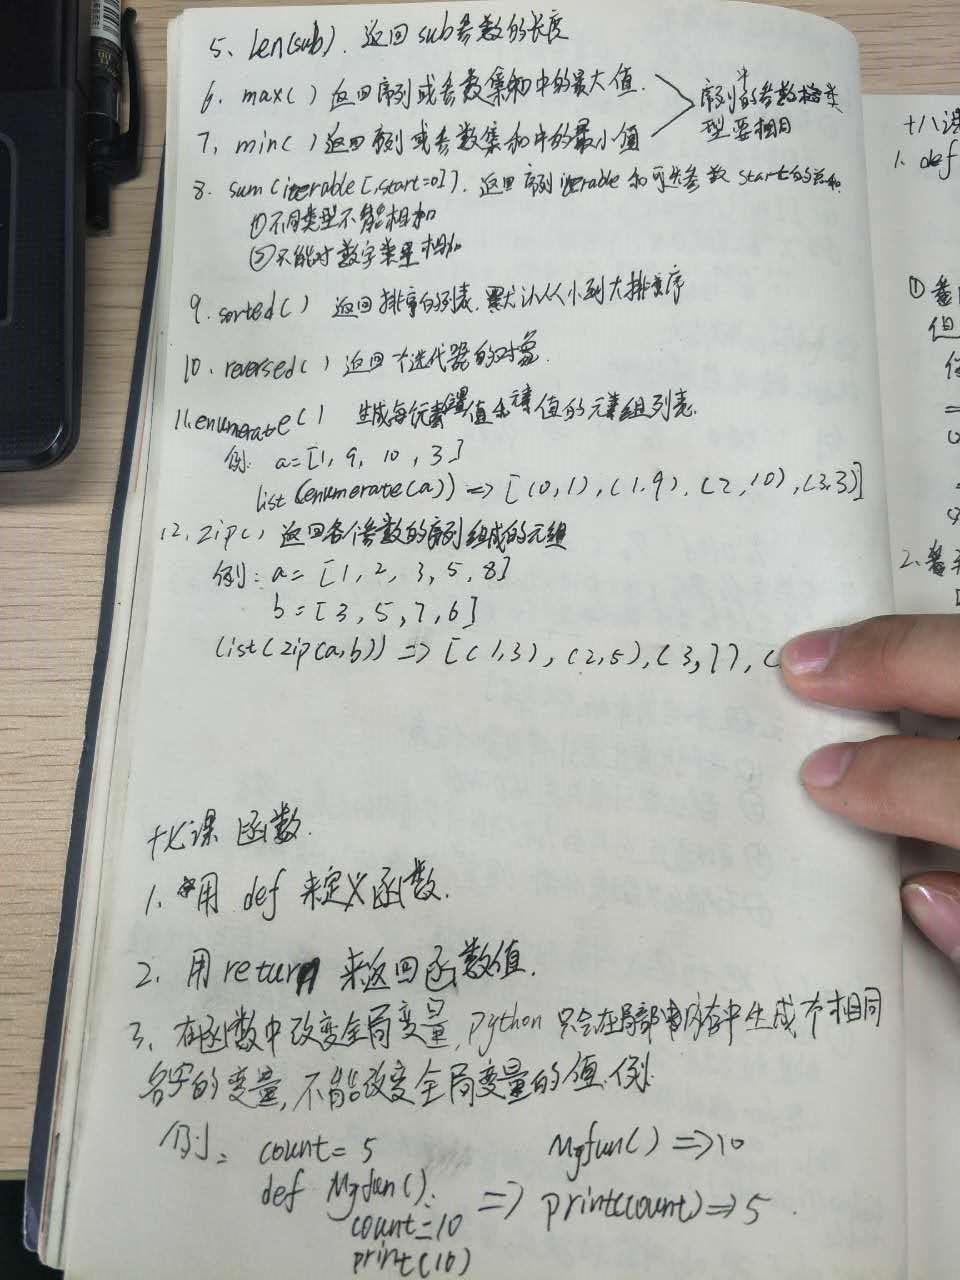 5、len(sub). 返回sub参数的长度
6、max( ) 返回序列或参数集和中的最大值.
7、min( ) 返回序列或参数集和中的最小值
序列中的参数 类
型要相同
8. sum(iterable[,start=0]). 返回序列iterable和可选参数start的总和
①不同类型不能相加
②不能对数字类型相加
9. sorted( ) 返回排序的列表. 默认从小到大排序
10、reversed( ) 返回个迭代器的对象
11.enumerate( ) 生成每元素位置值和元素值的元素组列表.
例: a=[1, 9, 10, 3]
list(enumerate(a)) => [(0,1),(1,9),(2,10),(3,3)]
12、zip( ) 返回各个参数的序列组成的元组
例: a= [1, 2, 3, 5, 8]
b=[3, 5, 7, 6]
list(zip(a,b)) => [(1,3),(2,5),(3,7),(
十七课 函数.
1. 用 def 来定义函数.
2. 用return 来返回函数值.
3、在函数中改变全局变量, python 只会在局部内存中生成个相同
名字的变量, 不能改变全局变量的值.例:
例: count= 5
def Myfun():
count=10
print(10)
=>
Myfun() =>10
print(count)=>5
十八课
1. def
①
但
2.